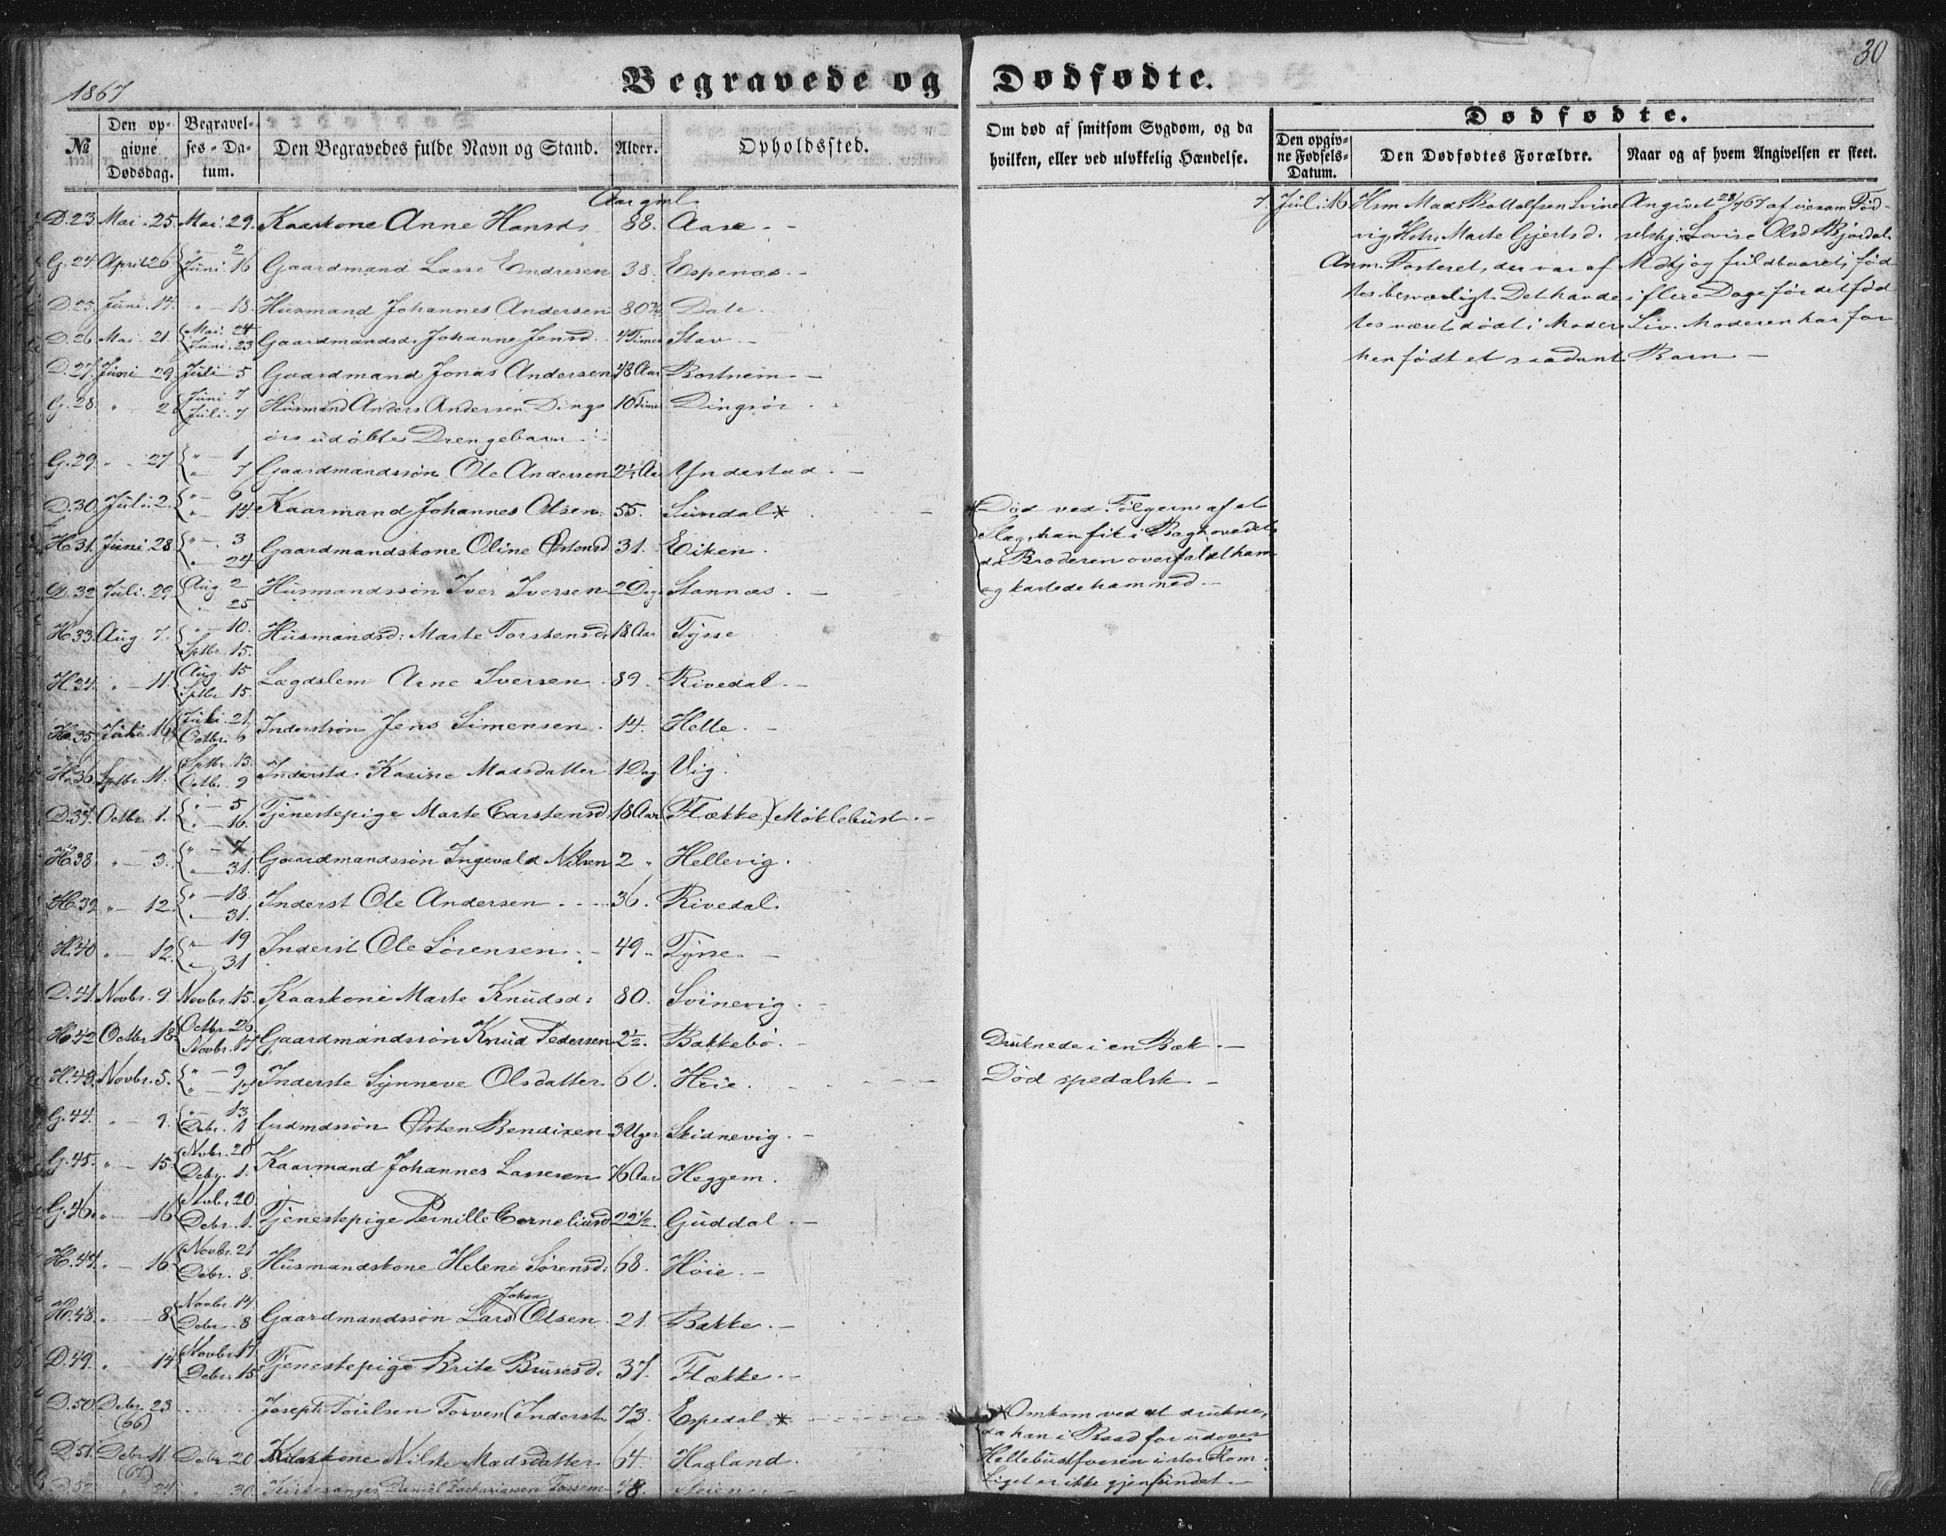 1867
Begravede og Dødfødte.
30
№
Den opgivne Dødsdag.
Begravelses-Datum.
Den Begravedes fulde Navn og Stand.
Alder.
Opholdssted.
Om død af smitsom Sygdom, og da hvilken, eller ved ulykkelig Hændelse.
Dødfødte.
Den opgivne Fødsels-Datum.
Den Dødfødtes Forældre.
Naar og af hvem Angivelsen er skeet.
Aar gml.
D.23. Mai. 25. Mai. 29. Kaarkone Anne Hansd. 88. Aase.
G.24. April 26 Juni 2 16 Gaardmand Lasse Endresen 38. Espenæs.
D.25. Juni. 14. " - 18. Husmand Johannes Andersen 80¾ Dale.
D.26 Mai. 21. Mai. 24 Juni. 23 Gaardmandsd. Johanne Jensd. 4 Timer Stav.
D.27. Juni 29 Juli 5 Gaardmand Jonas Andersen 48 Aar Bortnem.
G.28. " 2 Juni 7 Juli. 7 Husmand Anders Andersen Dings 10 Timer Dingsør.
ørs udøbte Drengebarn.
G.29. " 27 " - 1 " 7 Gaardmandssøn Ole Andersen 2½ Aar Yndestad.
D.30. Juli. 2. " - 6 " 14. Kaarmand Johannes Olsen. 55. Sundal *
H.31. Juni 28 " - 3 " 24 Gaardmandskone Oline Østensd 31. Eiken.
D.32. Juli. 29. Aug. 2 " 25 Husmandssøn Iver Iversen 2 Dag Stannæs.
H.33. Aug. 7. " - 10. Sptbr. 15. Husmandsd: Marte Torstensd: 18 Aar Tysse
H.34. " - 11. Aug. 15 Sptbr. 15. Lægdslem Arne Iversen 89. Rivedal.
H.35. Juli. 16 Juli. 21. Octbr. 6 Inderstsøn Jens Simensen. 14. Helle.
H.36. Sptbr. 11. Sptbr. 13. Octbr. 9 Inderstd: Karine Madsdatter 1 Dag Vig.
D.37. Octbr. 1. " - 5 " - 16. Tjenestepige Marte Carstensd. 18 Aar (Flække) Møklebust.
H.38. " - 3. " - 7. " 31. Gaardmandssøn Ingevald Nilsen 2 " Hellevig.
H.39. " - 12. " - 18. " 31. Inderst Ole Andersen. 36. Rivedal.
H.40 " - 12. " - 19 " 31 Inderst Ole Sørensen. 49. Tysse.
D.41. Novbr. 9. Novbr. 15. Kaarkone Marte Knudsd: 80. Svinevig.
H.42. Octbr. 18. Octbr. 26. Novbr. 17 Gaardmandssøn Knud Pedersen 2½. Bakkebø.
H.43. Novbr. 5. " - 9 " - 17 Inderste Synneve Olsdatter 60. Høie.
G.44. " - 9. " 13. Debr. 1 Grdmdssøn Østen Bendixen 3 Uger Skidnevig.
G.45. " - 15. Novbr. 20 Debr. 1. Kaarmand Johannes Lassesen 76 Aar Heggem.
G.46. " - 16 Novbr. 20 Debr. 1. Tjenestepige Pernille Corneliusd 22½. Guddal.
H.47. " - 16. Novbr. 21 Debr. 8. Husmandskone Helene Sørensd: 68. Høie.
H.48. " - 8 Novbr. 14. Debr. 8 Gaardmandssøn Lars Johan Olsen. 21. Bakke.
D.49. " - 14 Novbr. 17. Debr. 15. Tjenestepige Brite Brusesd. 37. Flække.
D.50. Debr. 23 (66) Joseph Poulsen Torven (Inderst 73. Espedal *
D.51. Debr. 11 (67) Debr. 20 Kaarkone Nilske Madsdatter 64. Hagland.
D.52. " 24. " 30. Kirkesanger Daniel Zachariassen Fossem 78. Steien.
Død ved Følgerne af et
Slag, han fik i Baghovedet
da Broderen overfaldt ham
og kastede ham ned.
Druknede i en Bæk.
Død spedalsk
* Omkom ved at drukne,
da han i Baad for udover
Hellebustfossen i stor Flom.
Liget er ikke gjenfundet.
7. Juli. 16 Hsm Mads Botolfsen Svine Angivet 28/7 67 af exam. Fød-
vig, Hstr. Marte Gjertsd. selshj. Lovise Olsd Bjordal.
Anm. Fosteret, der var af Mdkj og fuldbaaret, fød
tes besværligt. Det havde i flere Dage før det fød
tes været dødt i Moders Liv. Moderen har for
hen født et saadant Barn